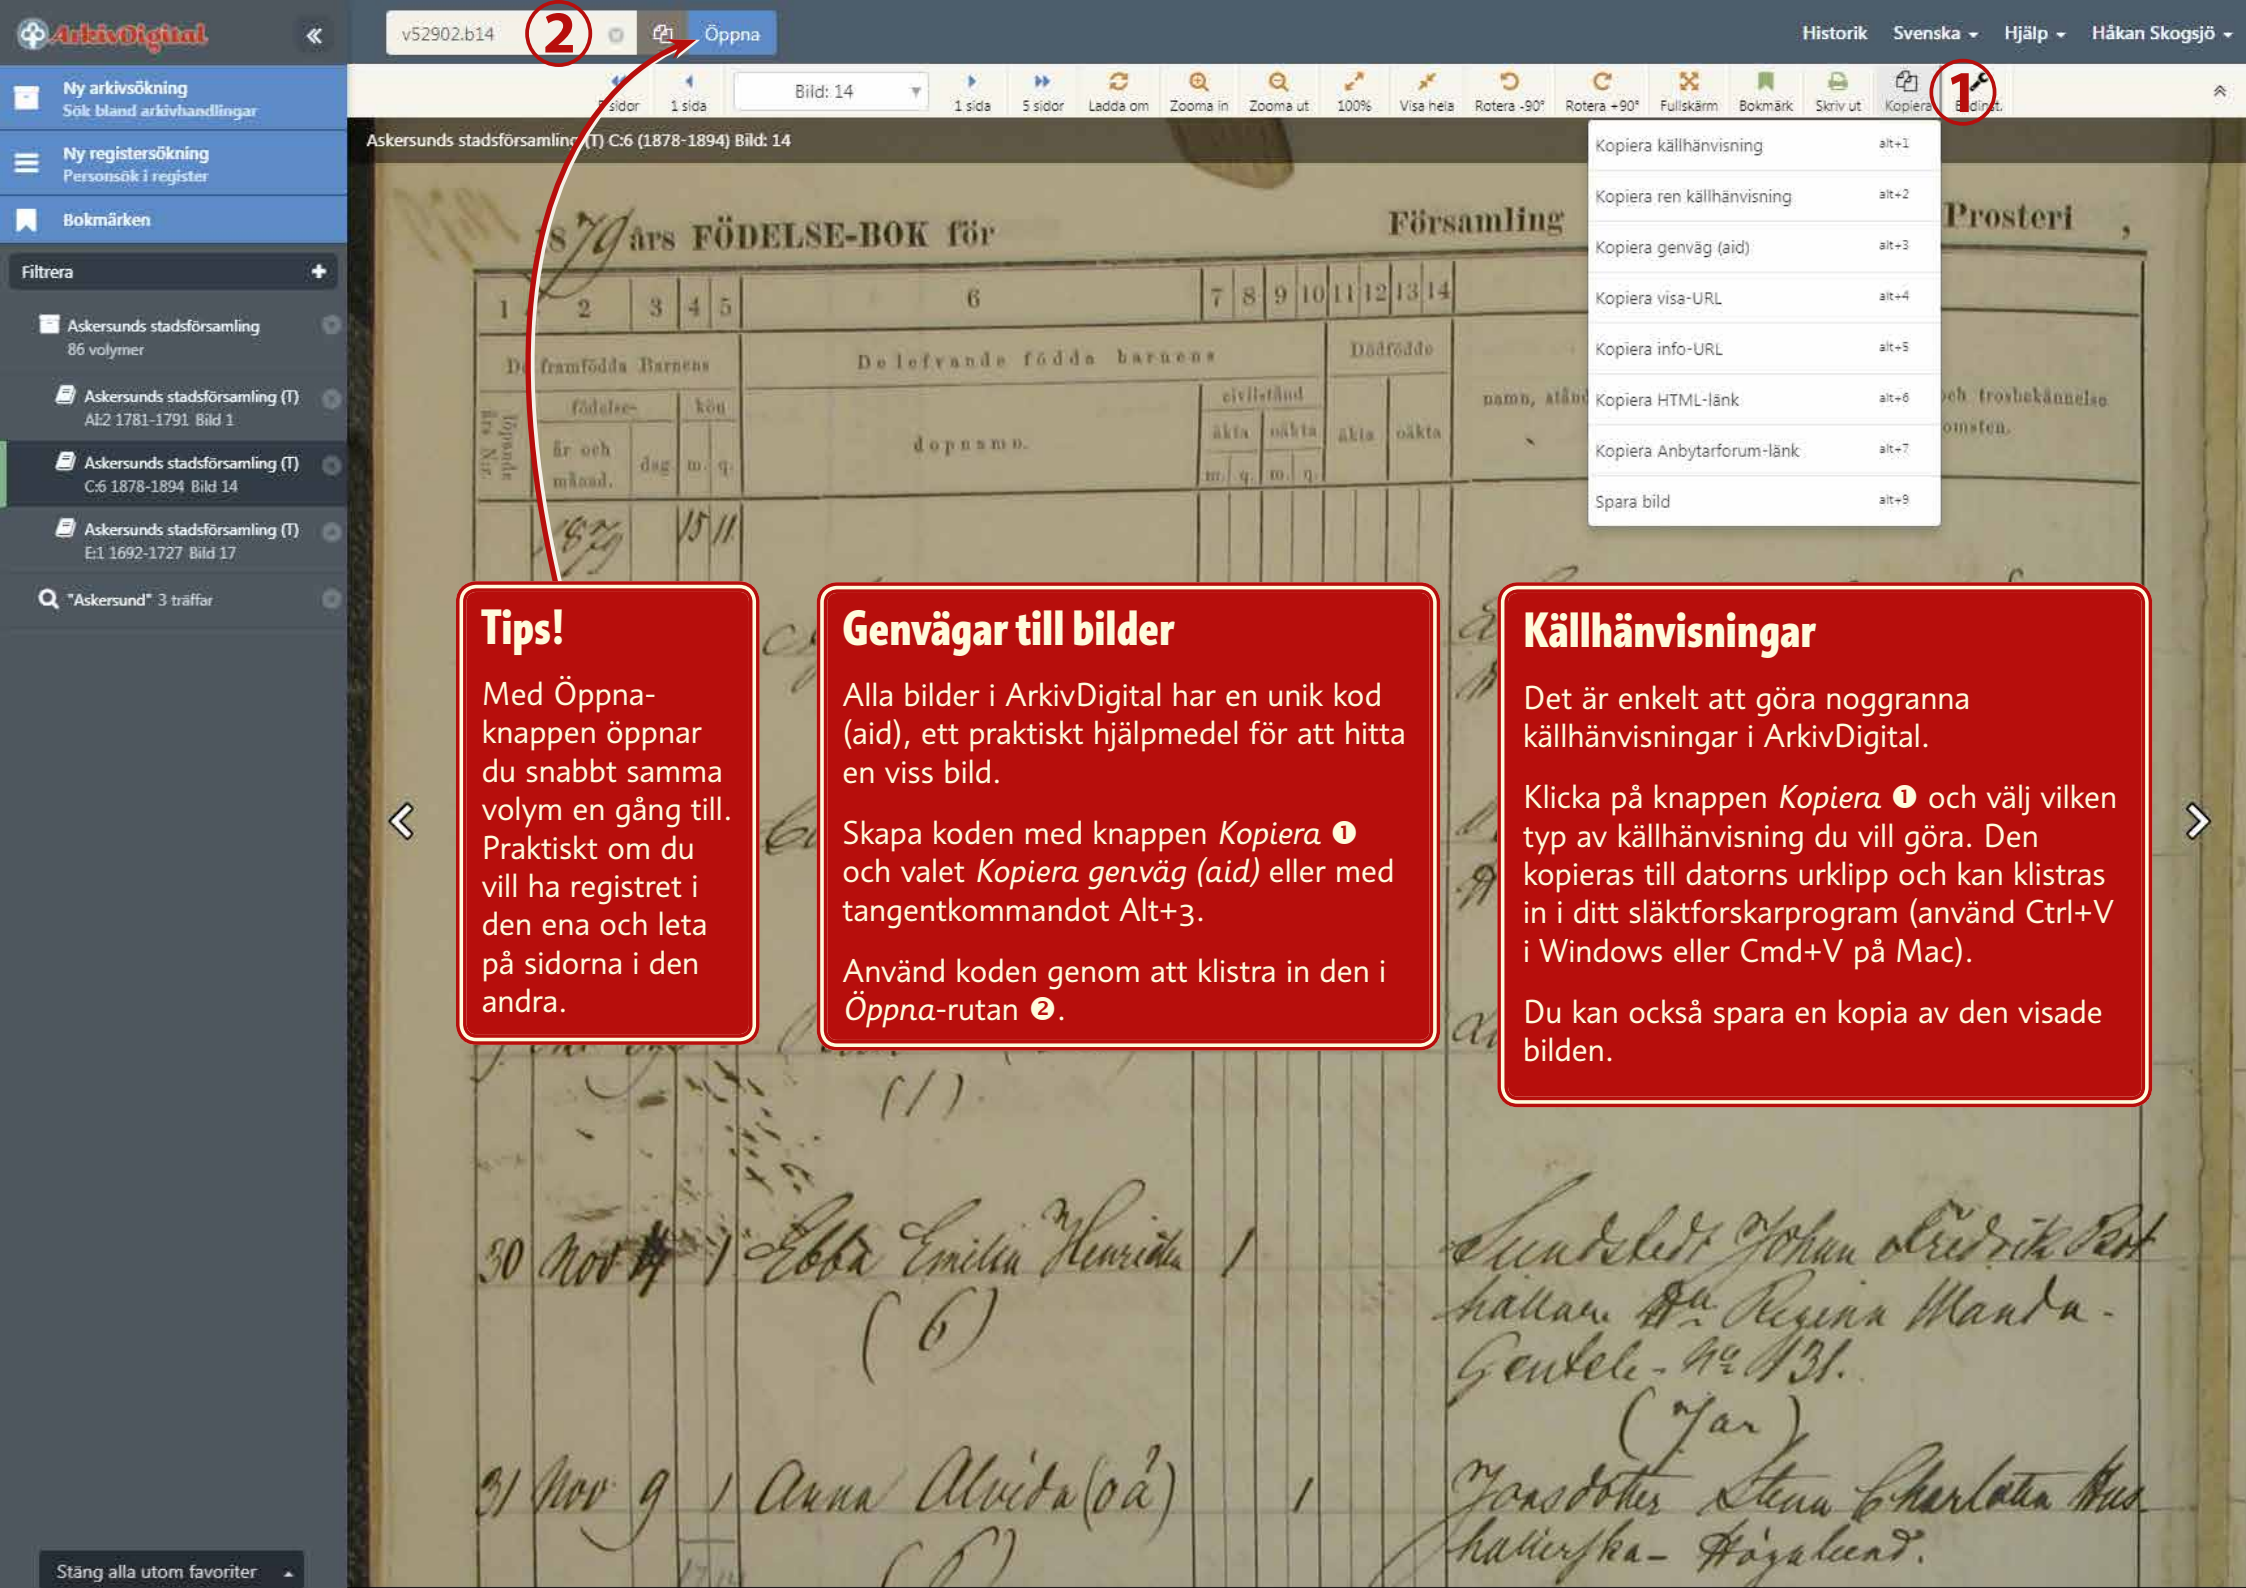 ArkivDigital «
v52902.b14 2 Öppna
Historik Svenska Hjälp Håkan Skogsjö
Ny arkivsökning
Sök bland arkivhandlingar
Ny registersökning
Personsök i register
Bokmärken
Filtrera +
Askersunds stadsförsamling
86 volymer
Askersunds stadsförsamling (T)
AI:2 1781-1791 Bild 1
Askersunds stadsförsamling (T)
C:6 1878-1894 Bild 14
Askersunds stadsförsamling (T)
E:1 1692-1727 Bild 17
"Askersund" 3 träffar
Stäng alla utom favoriter
sidor 1 sida Bild: 14 1 sida 5 sidor Ladda om Zooma in Zooma ut 100% Visa hela Rotera -90° Rotera +90° Fullskärm Bokmärk Skriv ut Kopiera 1
Askersunds stadsförsamling (T) C:6 (1878-1894) Bild: 14
Kopiera källhänvisning alt+1
Kopiera ren källhänvisning alt+2
Kopiera genväg (aid) alt+3
Kopiera visa-URL alt+4
Kopiera info-URL alt+5
Kopiera HTML-länk alt+6
Kopiera Anbytarforum-länk alt+7
Spara bild alt+9
1879 års FÖDELSE-BOK för Församling Prosteri ,
1 2 3 4 5 6 7 8 9 10 11 12 13 14
framfödda Barnens De lefvande födda barnens Dödfödde
födelse- kön civilstånd namn, stånd och trosbekännelse
löpande års N:r. år och månad. dag m. q. dopnamn. äkta oäkta äkta oäkta
m. q. m. q.
1879 15 11
Tips!
Med Öppna-
knappen öppnar
du snabbt samma
volym en gång till.
Praktiskt om du
vill ha registret i
den ena och leta
på sidorna i den
andra.
Genvägar till bilder
Alla bilder i ArkivDigital har en unik kod
(aid), ett praktiskt hjälpmedel för att hitta
en viss bild.
Skapa koden med knappen Kopiera ❶
och valet Kopiera genväg (aid) eller med
tangentkommandot Alt+3.
Använd koden genom att klistra in den i
Öppna-rutan ❷.
Källhänvisningar
Det är enkelt att göra noggranna
källhänvisningar i ArkivDigital.
Klicka på knappen Kopiera ❶ och välj vilken
typ av källhänvisning du vill göra. Den
kopieras till datorns urklipp och kan klistras
in i ditt släktforskarprogram (använd Ctrl+V
i Windows eller Cmd+V på Mac).
Du kan också spara en kopia av den visade
bilden.
(1).
30 Nov 1 Ebba Emilia 1 Johan Fredrik
(6) Regina Manda
No 131.
(Jan)
31 Nov 9 1 Anna Alvida (oä) 1 Jonsdotter Stina
(6)